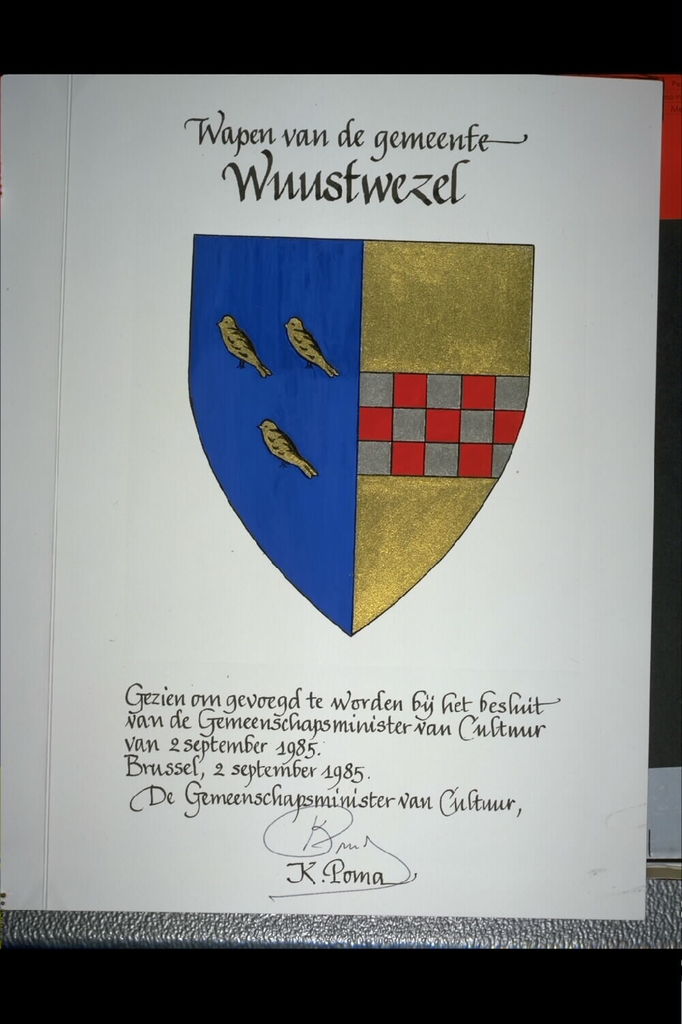 Wapen van de gemeente
Wuustwezel
Gezien om gevoegd te worden bij het besluit
van de Gemeenschapsminister van Cultuur
van 2 september 1985.
Brussel, 2 september 1985.
De Gemeenschapsminister van Cultuur,
K. Poma